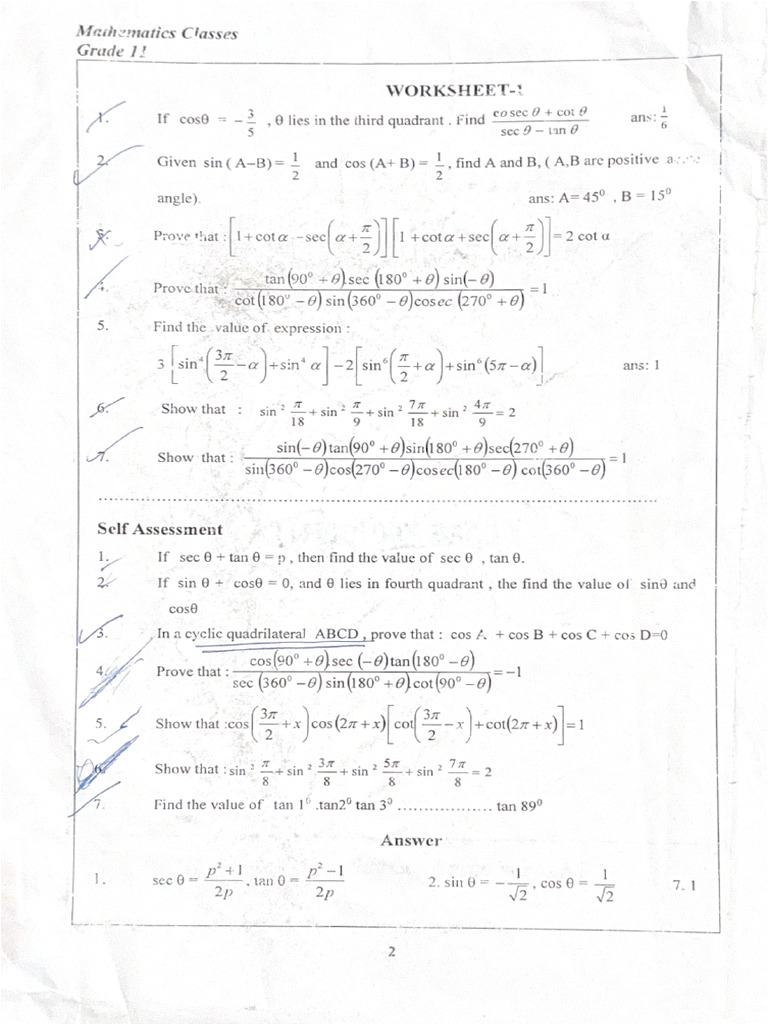 Mathematics Classes
Grade 11
WORKSHEET-1
1. If cosθ = − 3/5 , θ lies in the third quadrant . Find (cosec θ + cot θ)/(sec θ − tan θ) ans: 1/6
2. Given sin ( A–B) = 1/2 and cos (A+ B) = 1/2 , find A and B, ( A,B are positive
angle). ans: A= 45⁰ , B = 15⁰
3. Prove that : [1 + cot α − sec(α + π/2)] [1 + cot α + sec(α + π/2)] = 2 cot α
4. Prove that : (tan(90⁰ + θ).sec (180⁰ + θ) sin(−θ))/(cot(180⁰ − θ) sin(360⁰ − θ)cosec (270⁰ + θ)) = 1
5. Find the value of expression :
3 [sin⁴(3π/2 − α) + sin⁴ α] − 2[sin⁶(π/2 + α) + sin⁶(5π − α)] ans: 1
6. Show that : sin² π/18 + sin² π/9 + sin² 7π/18 + sin² 4π/9 = 2
7. Show that : (sin(−θ)tan(90⁰ + θ)sin(180⁰ + θ)sec(270⁰ + θ))/(sin(360⁰ − θ)cos(270⁰ − θ)cosec(180⁰ − θ) cot(360⁰ − θ)) = 1
Self Assessment
1. If sec θ + tan θ = p , then find the value of sec θ , tan θ.
2. If sin θ + cosθ = 0, and θ lies in fourth quadrant , the find the value of sinθ and
cosθ
3. In a cyclic quadrilateral ABCD , prove that : cos A + cos B + cos C + cos D=0
4. Prove that : (cos(90⁰ + θ).sec (−θ)tan(180⁰ − θ))/(sec (360⁰ − θ) sin(180⁰ + θ).cot(90⁰ − θ)) = −1
5. Show that :cos(3π/2 + x)cos(2π + x)[cot(3π/2 − x) + cot(2π + x)] = 1
6. Show that : sin² π/8 + sin² 3π/8 + sin² 5π/8 + sin² 7π/8 = 2
7. Find the value of tan 1⁰ .tan2⁰ tan 3⁰ .................. tan 89⁰
Answer
1. sec θ = (p² + 1)/2p , tan θ = (p² − 1)/2p 2. sin θ = − 1/√2 , cos θ = 1/√2 7. 1
2